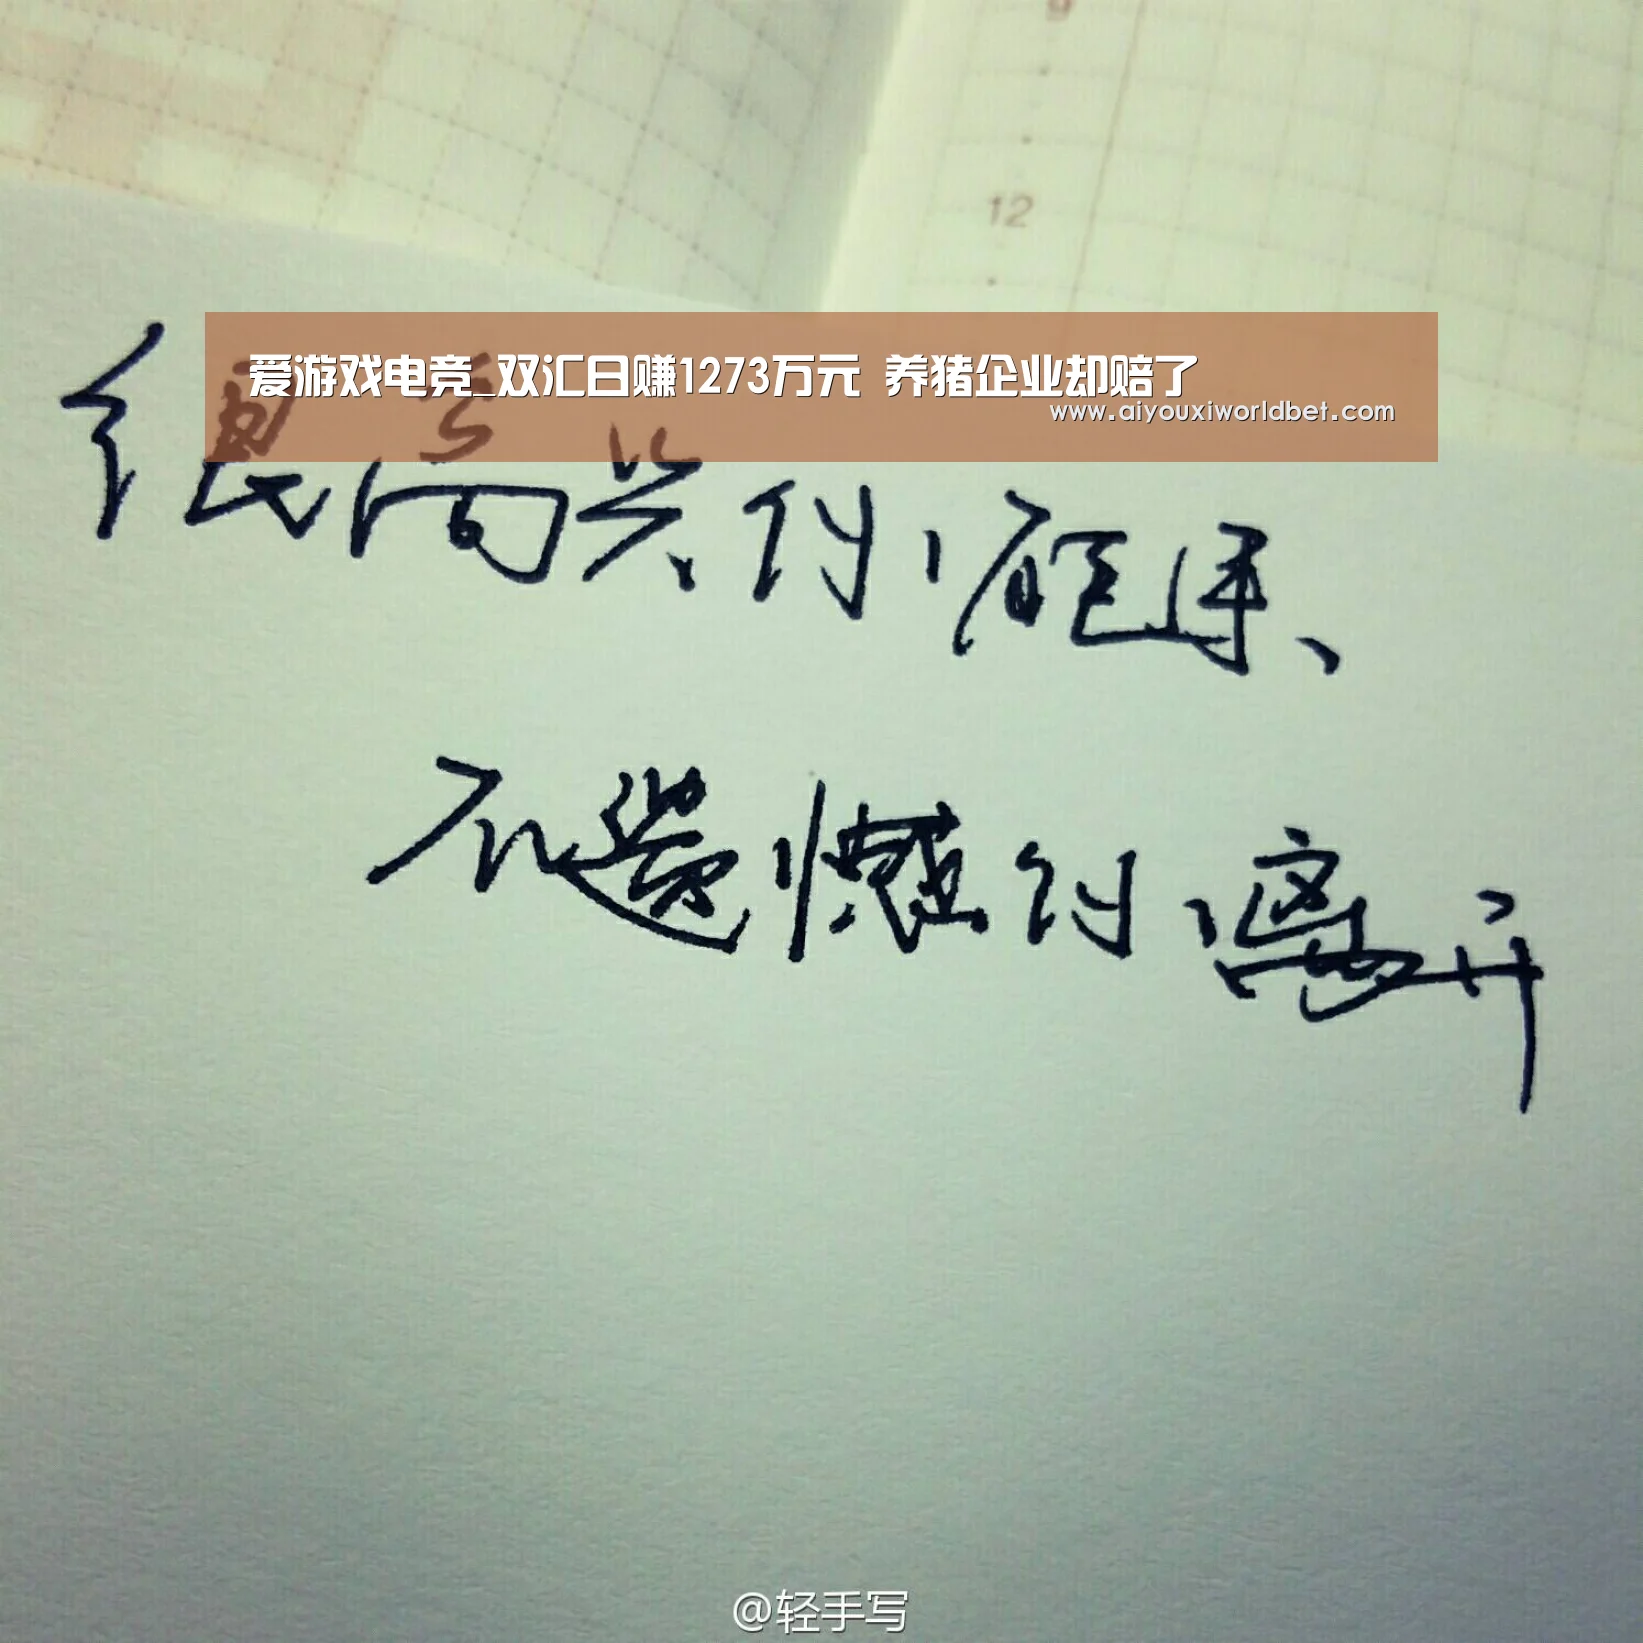 12
爱游戏电竞_双汇日赚1273万元 养猪企业却赔了
www.aiyouxiworldbet.com
很高兴你能来、
不遗憾你离开
@轻手写